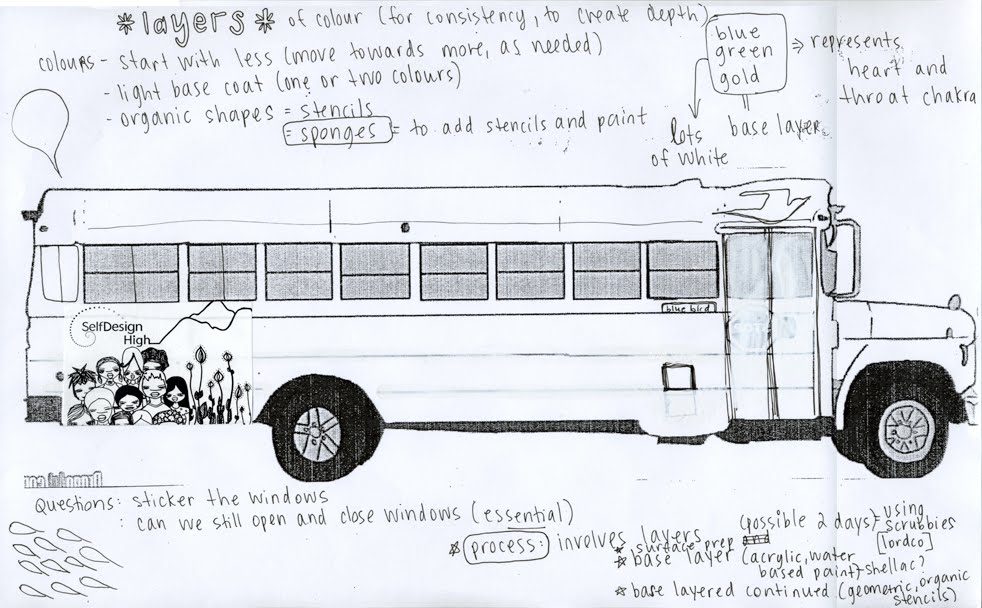 *layers* of colour (for consistency, to create depth)
colours - start with less (move towards more, as needed)
- light base coat (one or two colours)
- organic shapes = stencils
= sponges = to add stencils and paint
blue
green
gold
⇒ represents
heart and
throat chakra
lots
of white
= base layer
blue bird
SelfDesign
High
Questions: sticker the windows
: can we still open and close windows (essential)
* process: involves layers
* surface prep (possible 2 days) = using
scrubbies
[lordco]
* base layer (acrylic, water
based paint) → shellac?
* base layered continued (geometric, organic
stencils)